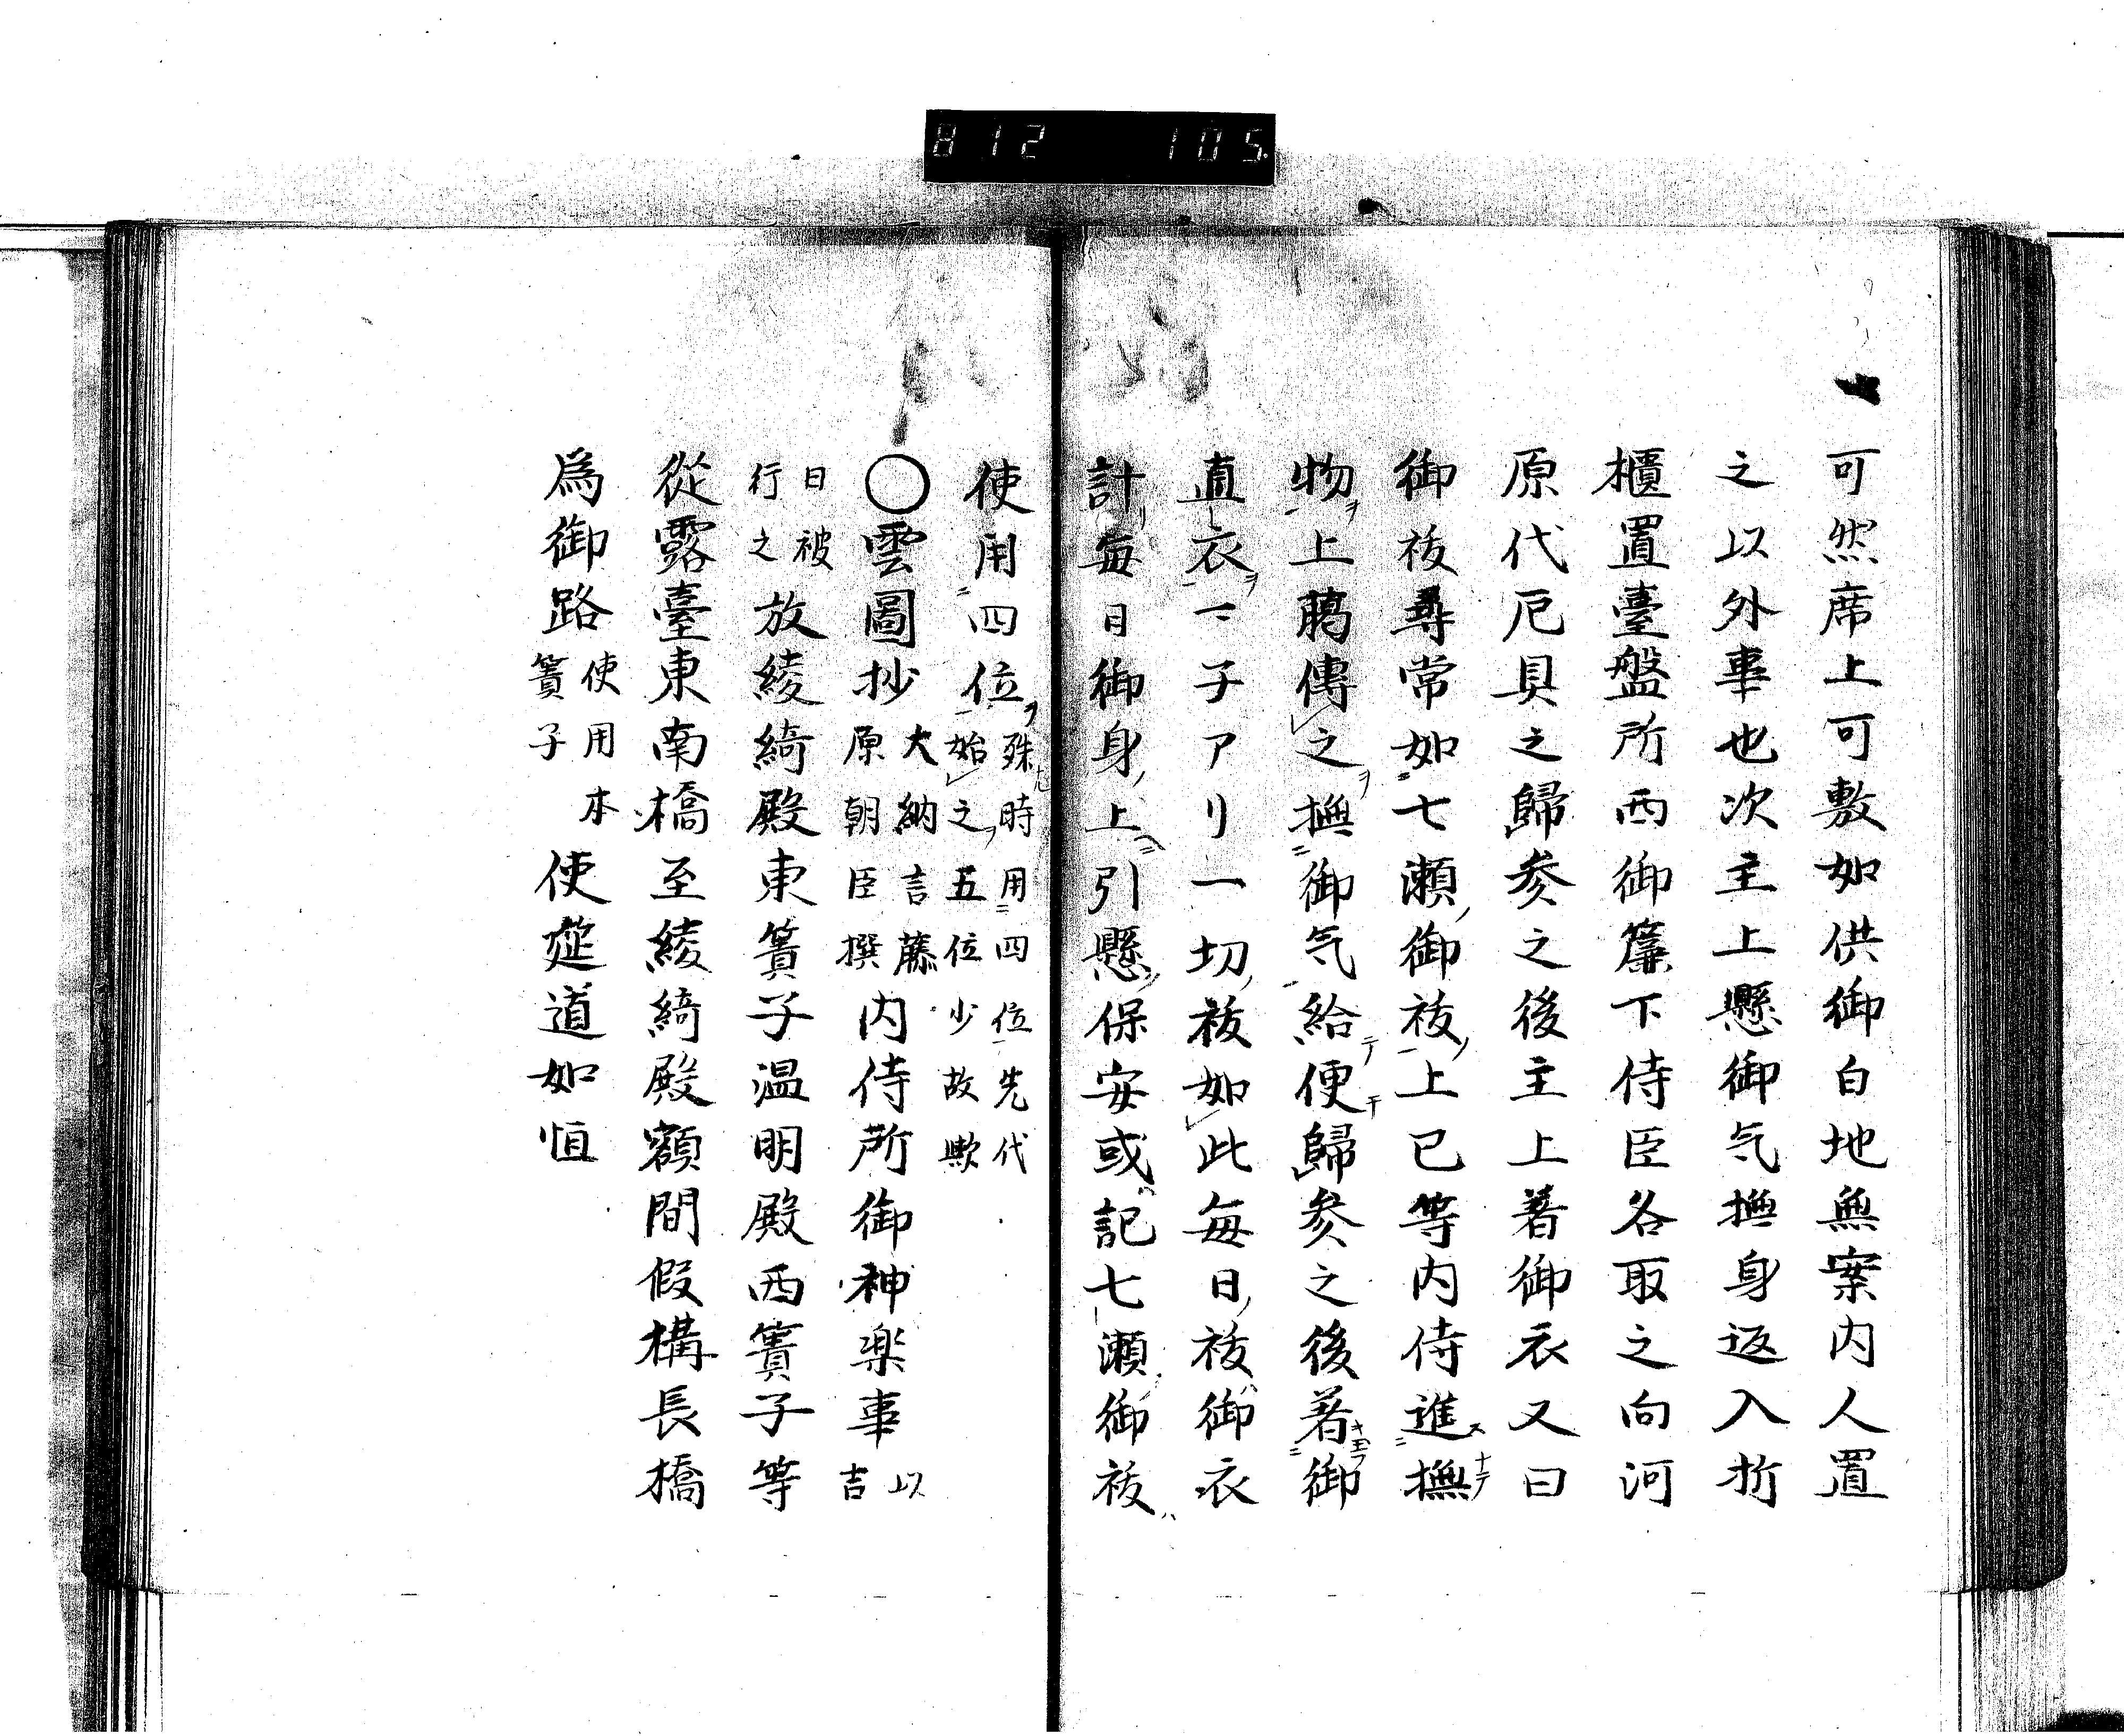 812 105.
可然席上可敷如供御白地無案内人置
之以外事也次主上懸御气撫身返入折
櫃置臺盤所西御簾下侍臣各取之向河
原代厄具之歸参之後主上著御衣又曰
御祓尋常如七瀬御祓上已等内侍進撫
物上﨟傳之撫御气給便歸参之後著御
直衣一子アリ一切祓如此毎日祓御衣
計毎日御身上引懸保安或記七瀬御祓
使用四位殊時用四位先代
始之五位少故歟
○雲圖抄大納言藤
原朝臣撰内侍所御神楽事以
吉
日被
行之放綾綺殿東簀子温明殿西簀子等
從露臺東南橋至綾綺殿額間假構長橋
爲御路使用本
簀子使莚道如恒